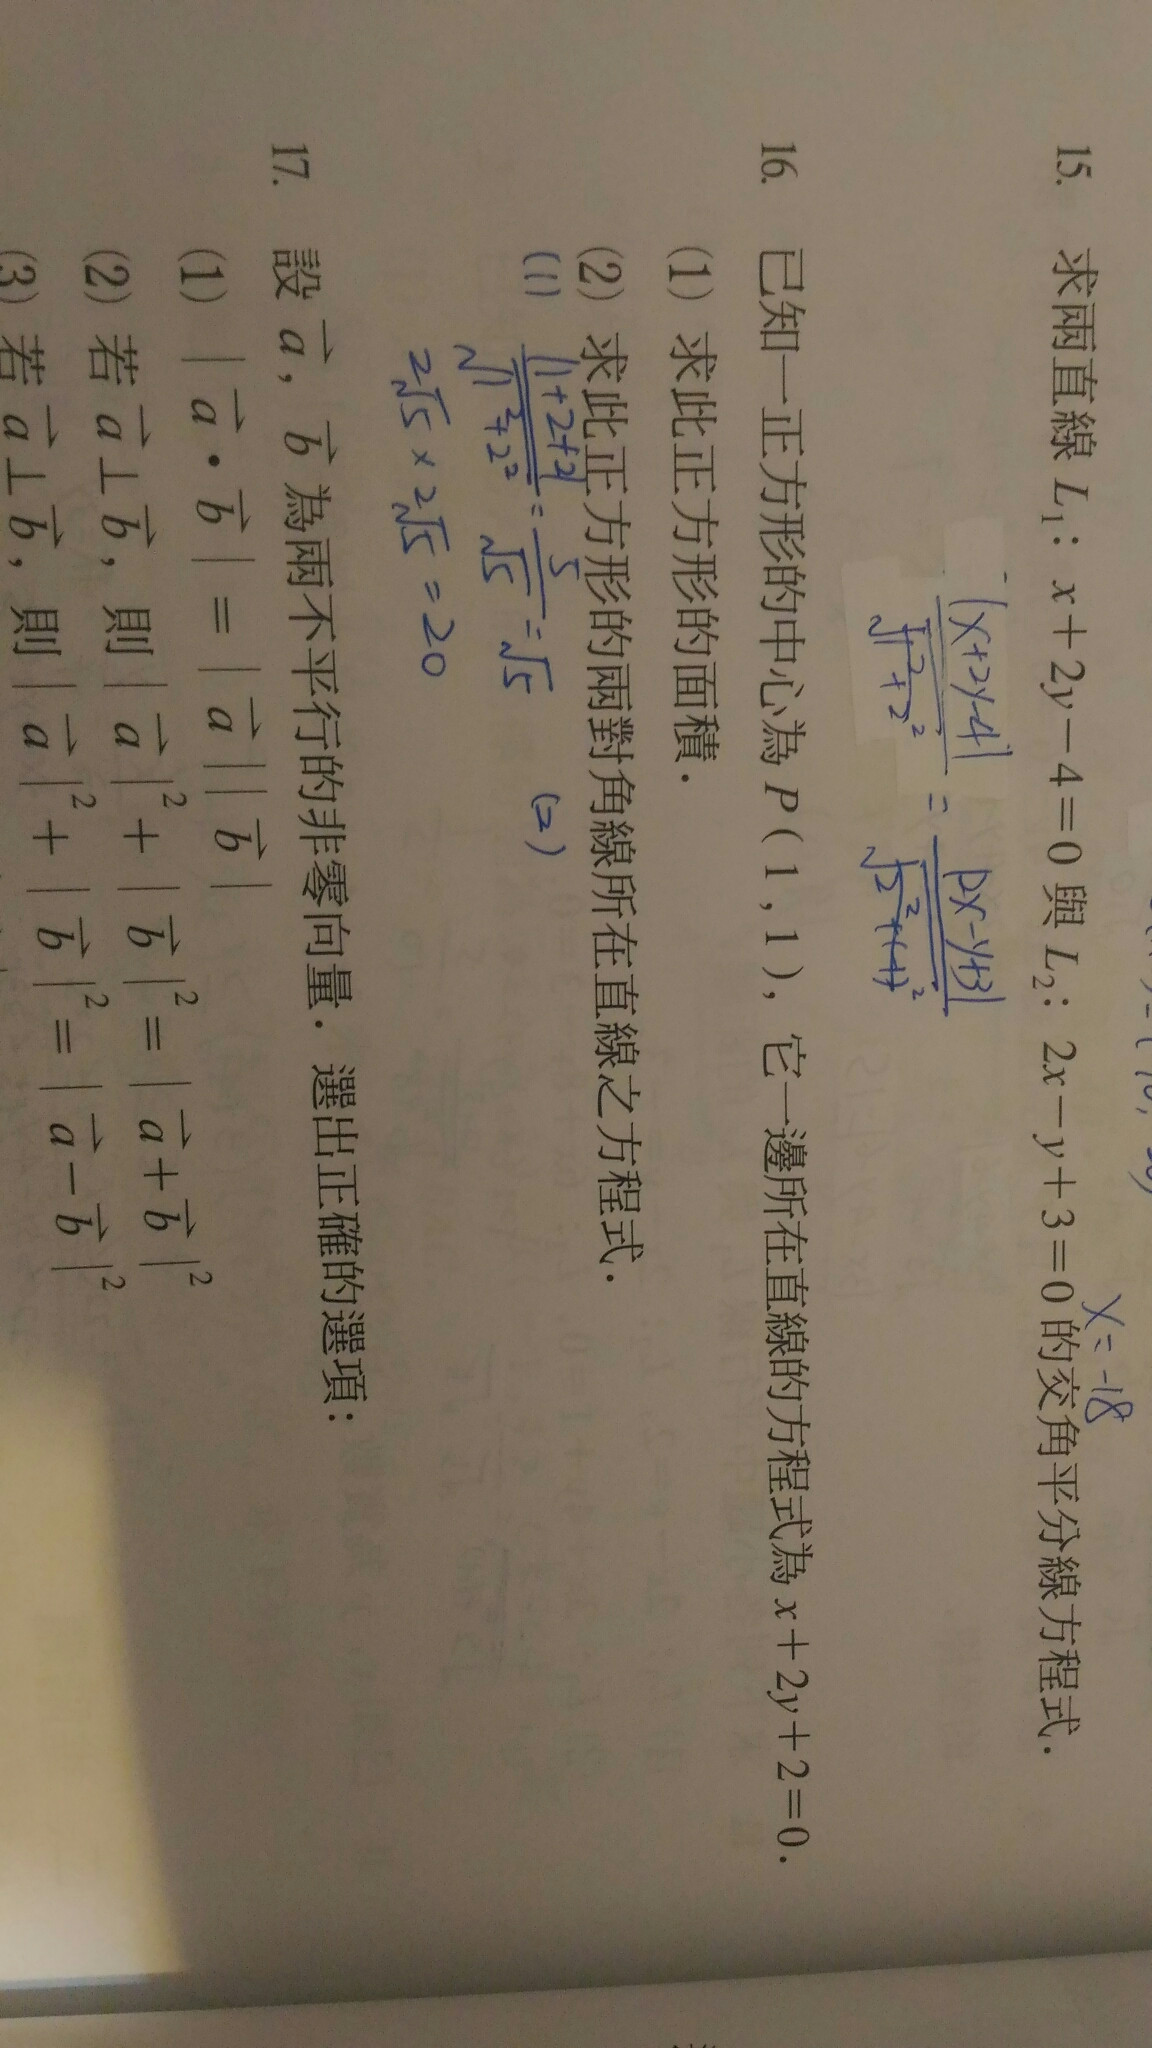 x=-18
15. 求兩直線 L₁：x+2y-4=0 與 L₂：2x-y+3=0 的交角平分線方程式.
|x+2y-4| / √(1²+2²) = |2x-y+3| / √(2²+(-1)²)
16. 已知一正方形的中心為 P(1,1), 它一邊所在直線的方程式為 x+2y+2=0.
(1) 求此正方形的面積.
(2) 求此正方形的兩對角線所在直線之方程式.
(1) |1+2+2| / √(1²+2²) = 5/√5 = √5 (2)
2√5 × 2√5 = 20
17. 設 a⃗, b⃗ 為兩不平行的非零向量. 選出正確的選項：
(1) |a⃗·b⃗|=|a⃗||b⃗|
(2) 若 a⃗⊥b⃗, 則 |a⃗|²+|b⃗|²=|a⃗+b⃗|²
(3) 若 a⃗⊥b⃗, 則 |a⃗|²+|b⃗|²=|a⃗-b⃗|²